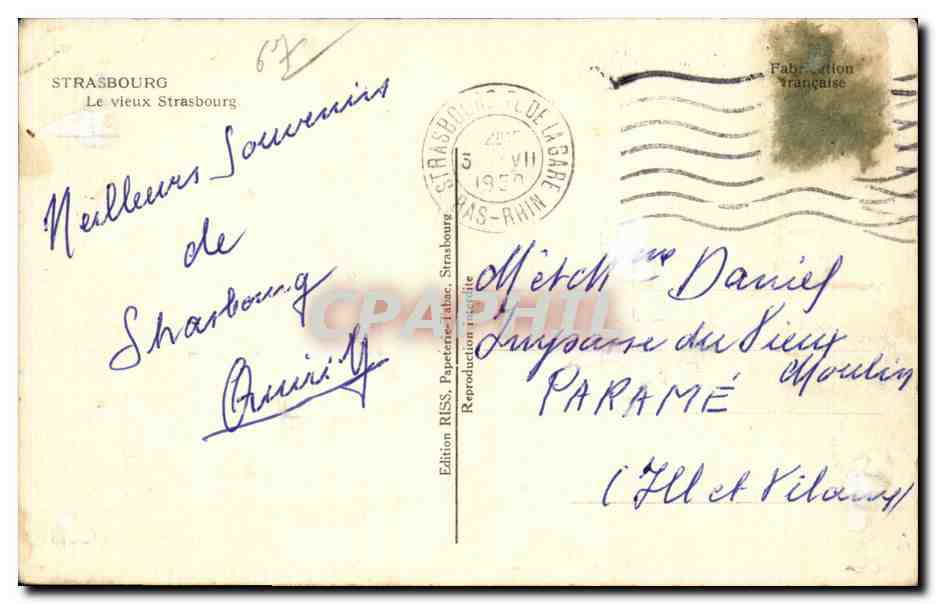 67
STRASBOURG
Le vieux Strasbourg
Meilleurs Souvenirs
de
Strasbourg
STRASBOURG DE LA GARE
VII
BAS-RHIN
Fabrication
française
Edition RISS, Papeterie-Tabac, Strasbourg
Reproduction interdite
CPAPHIL
M et Mme Daniel
Impasse du Vieux
Moulin
PARAMÉ
(Ille et Vilaine)